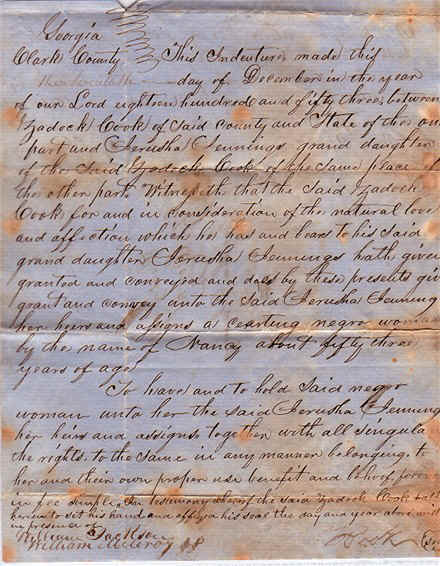 Georgia
Clark County This Indenture made this
day of December in the year
of our Lord eighteen hundred and fifty three, between
Zadock Cook of Said County and State of the one
part and Jerusha Jennings grand daughter
of the Said Zadock Cook of the Same place of
the other part. Witnesseth that the Said Zadock
Cook for and in consideration of the natural love
and affection which he has and bears to his Said
grand daughter Jerusha Jennings hath given
granted and conveyed and does by these presents give
grant and convey unto the Said Jerusha Jennings
her heirs and assigns a certing negro woman
by the name of Nancy about fifty three
years of age
To have and to hold Said negro
woman unto her the said Jerusha Jennings
her heirs and assigns together with all singular
the rights to the same in any manner belonging to
her and their own proper use benefit and behoof forever
in fee simple In testimony whereof the said Zadock Cook hath
hereunto set his hand and affix his seal the day and year above writ
in presence of
William Jackson
William